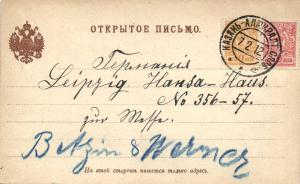 ОТКРЫТОЕ ПИСЬМО.
КАЗАНЬ-АДМИРАЛТ. СЛОБ.
7.2.12
Германія
Leipzig Hansa-Haus
No 356-57.
zur Messe.
&
На этой сторонѣ пишется только адресъ.